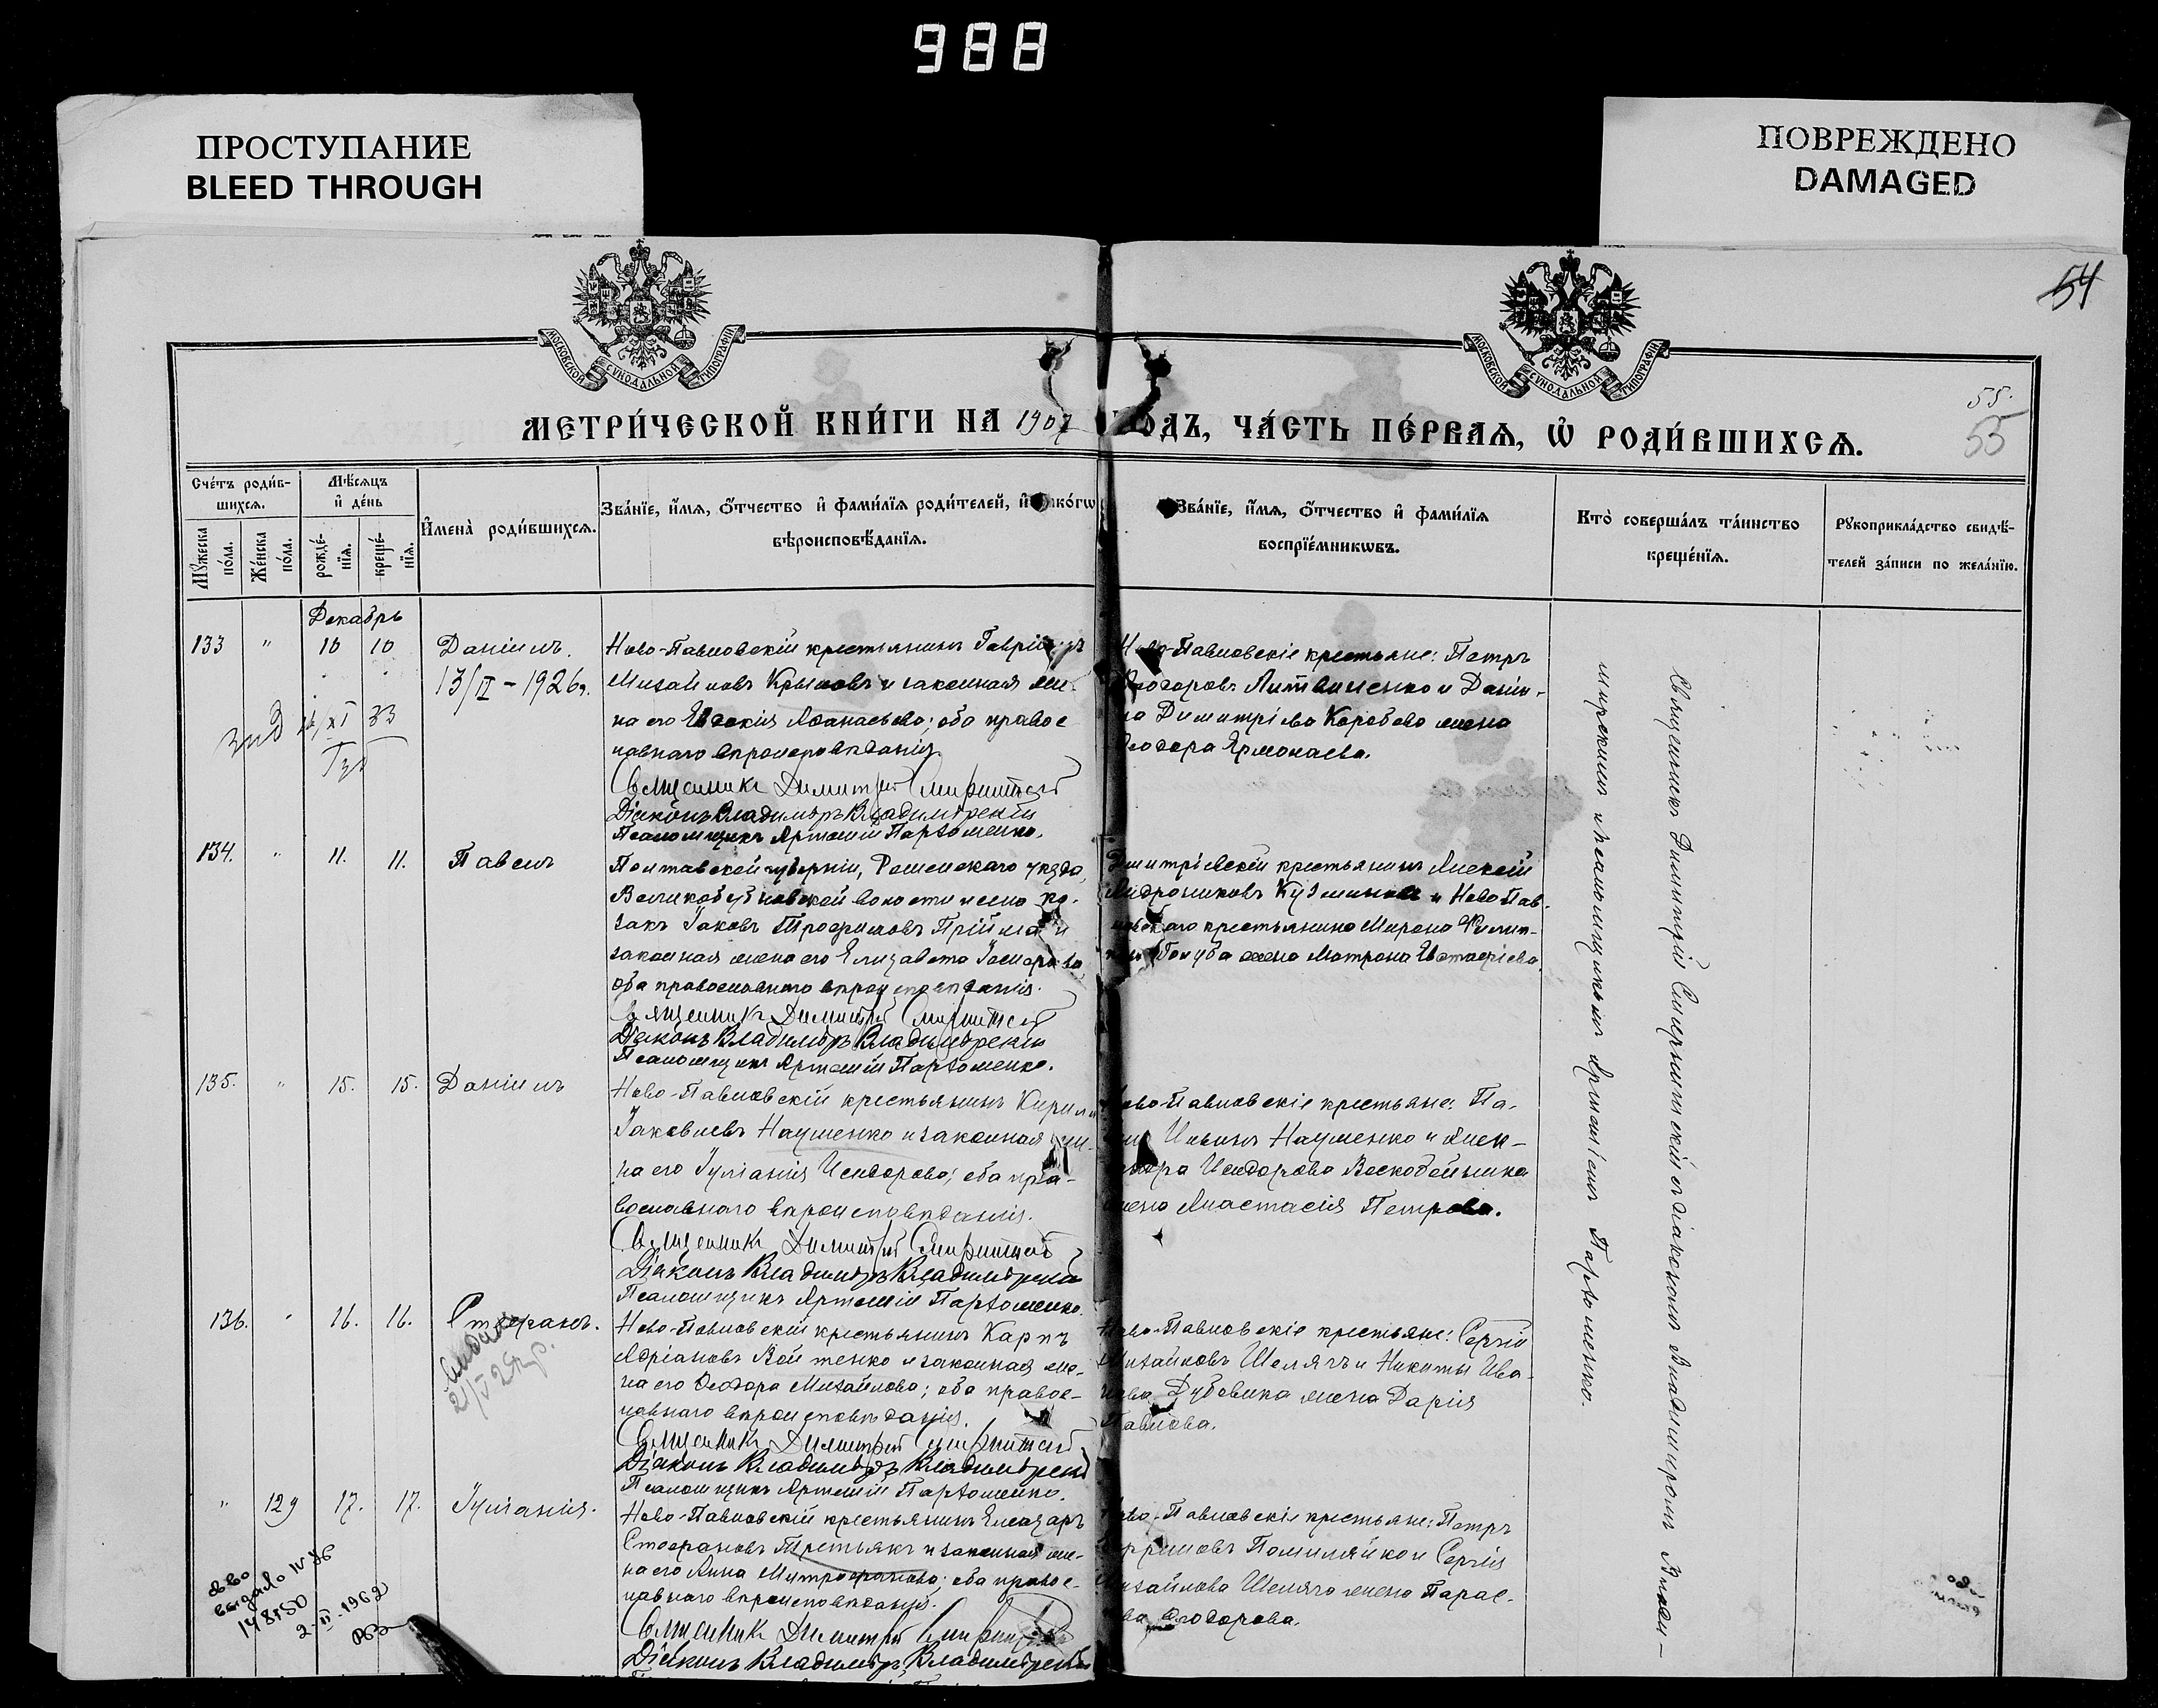 988
ПРОСТУПАНИЕ
BLEED THROUGH
ПОВРЕЖДЕНО
DAMAGED
54
МОСКОВСКОЙ СУНОДАЛЬНОЙ ТИПОГРАФІИ
МОСКОВСКОЙ СУНОДАЛЬНОЙ ТИПОГРАФІИ
55.
55
МЕТРИ́ЧЕСКОЙ КНИ́ГИ НА 1907
ОДЪ, ЧА́СТЬ ПЕ́РВАѦ, Ѡ҆ РОДИ́ВШИХСѦ.
Сче́тъ роди́в-
шихсѧ.
Мꙋ́жеска по́ла.
Же́нска по́ла.
Мѣ́сѧцъ
и҆ де́нь
рожде́-нїѧ.
креще́-нїѧ.
И҆мена̀ роди́вшихсѧ.
Зва́нїе, и҆́мѧ, ѻ҆́тчество и҆ фами́лїѧ роди́телей, и҆ како́гѡ
вѣроисповѣ́данїѧ.
Зва́нїе, и҆́мѧ, ѻ҆́тчество и҆ фами́лїѧ
воспрїе́мникѡвъ.
Кто̀ соверша́лъ та́инство
креще́нїѧ.
Рꙋкоприкла́дство свидѣ́-
телей за́писи по жела́нїю.
Декабрь
133 " 10 10 Даніилъ.
13/II - 1926г.
Ново-Павловскій крестьянинъ Гавріилъ
Михайловъ Крыловъ и законная же-
на его Евдокія Аѳанасьева; оба правос
лавнаго вѣроисповѣданія
Священникъ Димитрій
Діаконъ Владиміръ Владимірскій
Псаломщикъ Артемій Пархоменко.
Ново-Павловскіе крестьяне: Петръ
Ѳеодоровъ Литвиненко и Даніи-
ла Димитріева Коробова жена
Ѳеодора Ермолаева.
134. " 11. 11. Павелъ
Полтавской губерніи, Роменскаго уѣзда,
волости и села ка-
закъ Іаковъ Трофимовъ Пріймакъ и
законная жена его Елизавета
оба православнаго вѣроисповѣданія.
Священникъ Димитрій
Діаконъ Владиміръ Владимірскій
Псаломщикъ Артемій Пархоменко.
Дмитріевскій крестьянинъ Алексій
Андрониковъ Кузьминовъ и Ново Пав-
ловскаго крестьянина Мирона Филип-
пова Голуба жена Матрона Евстафіева.
135. " 15. 15. Даніилъ
Ново-Павловскій крестьянинъ Кириллъ
Іаковлевъ Науменко и законная же-
на его Іуліанія Исидорова; оба пра-
вославнаго вѣроисповѣданія.
Священникъ Димитрій
Діаконъ Владиміръ Владимірскій
Псаломщикъ Артемій Пархоменко.
Ново-Павловскіе крестьяне: Па-
Ильинъ Науменко и Алек-
сандра Исидорова Воскобойника
жена Анастасія Петрова.
136. " 16. 16. Стефанъ.
Ново-Павловскій крестьянинъ Карпъ
Адріановъ Войтенко и законная же-
на его Ѳеодора Михайлова; оба правос-
лавнаго вѣроисповѣданія.
Священникъ Димитрій
Діаконъ Владиміръ Владимірскій
Псаломщикъ Артемій Пархоменко.
Ново-Павловскіе крестьяне: Сергій
Михайловъ Шелягъ и Никиты Ива-
нова Дубовика жена Дарія
Павлова.
" 129 17. 17. Іуліанія.
Ново-Павловскій крестьянинъ Елеазаръ
Стефановъ Третьякъ и законная же-
на его Анна Митрофанова; оба правос-
лавнаго вѣроисповѣданія.
Священникъ Димитрій
Діаконъ Владиміръ Владимірскій
Ново-Павловскіе крестьяне: Петръ
Помиляйко и Сергія
Михайлова Шеляга жена Парас-
Ѳеодорова.
Священникъ Димитрій съ діакономъ Владиміромъ Влади-
мірскимъ и псаломщикомъ Артеміемъ Пархоменко.
2-II-1962